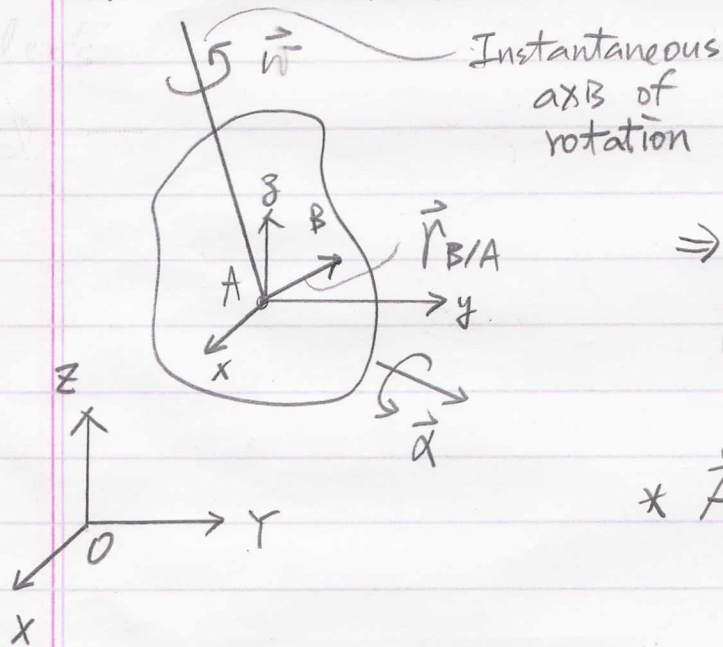 Instantaneous
axB of
rotation
$\vec{w}$
z
B
$\vec{r}_{B/A}$
⇒
A
y
x
Z
$\vec{\alpha}$
*
O
Y
X